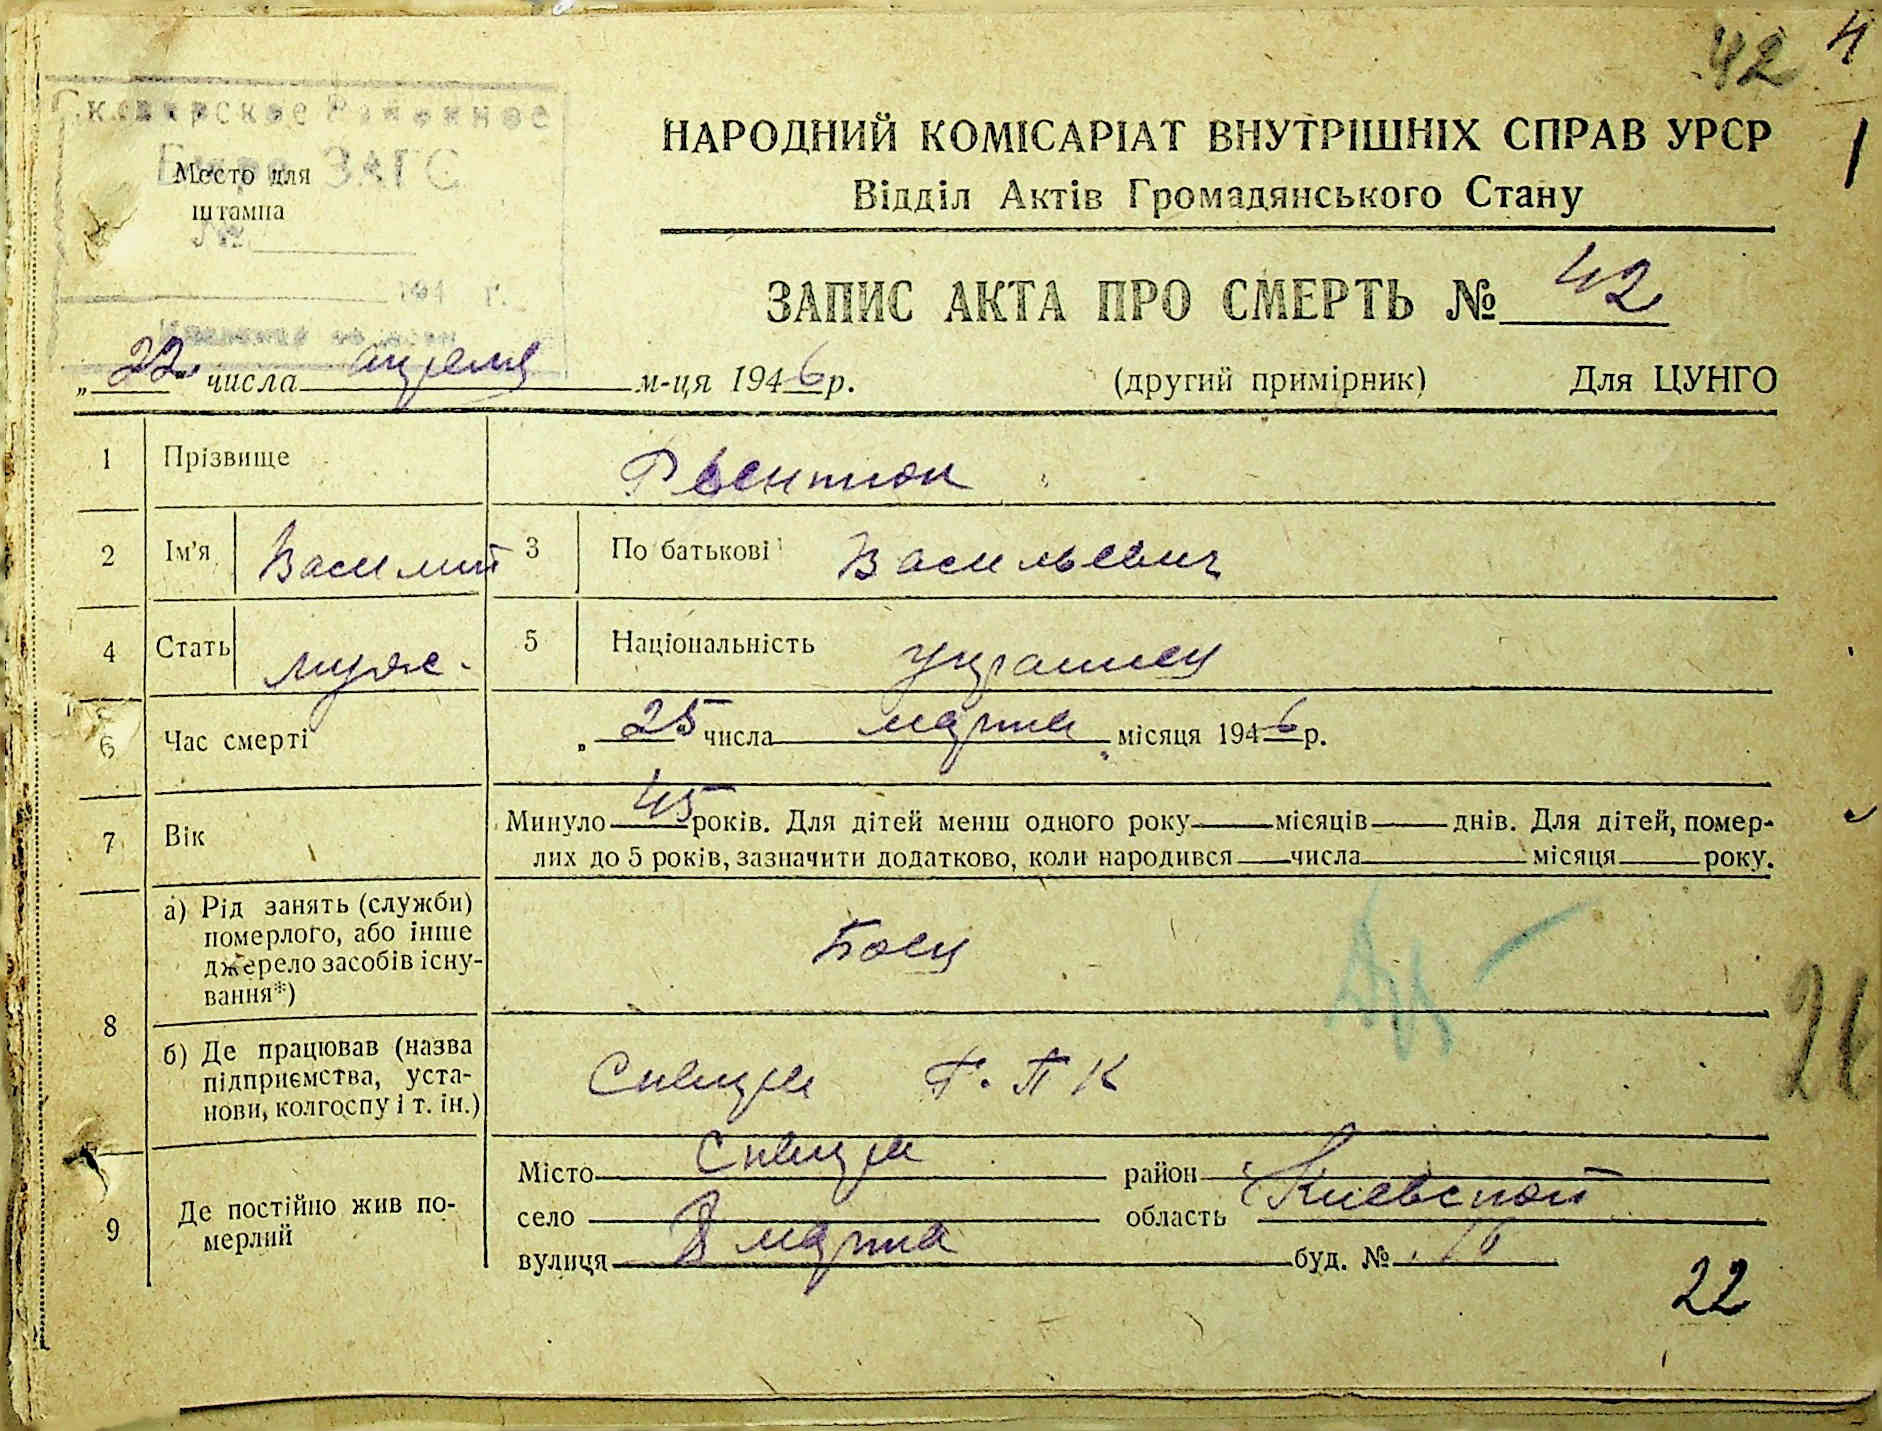 42 4
1
Сквирское Районное
Бюро ЗАГС
Место для
штампа
№
194 г.
НАРОДНИЙ КОМІСАРІАТ ВНУТРІШНІХ СПРАВ УРСР
Відділ Актів Громадянського Стану
ЗАПИС АКТА ПРО СМЕРТЬ № 42
„22" числа апреля м-ця 1946 р. (другий примірник) Для ЦУНГО
1 Прізвище
2 Ім'я Василий 3 По батькові Васильевич
4 Стать муж. 5 Національність украинец
6 Час смерті „25 числа марта місяця 1946 р.
7 Вік Минуло 45 років. Для дітей менш одного року місяців днів. Для дітей, помер-
лих до 5 років, зазначити додатково, коли народився числа місяця року.
8 а) Рід занять (служби)
померлого, або інше
джерело засобів існу-
вання*)
Боец
б) Де працював (назва
підприємства, уста-
нови, колгоспу і т. ін.)
Сквира П.П К
9 Де постійно жив по-
мерлий
Місто Сквира район
село область Киевской
вулиця 8 марта буд. №
22